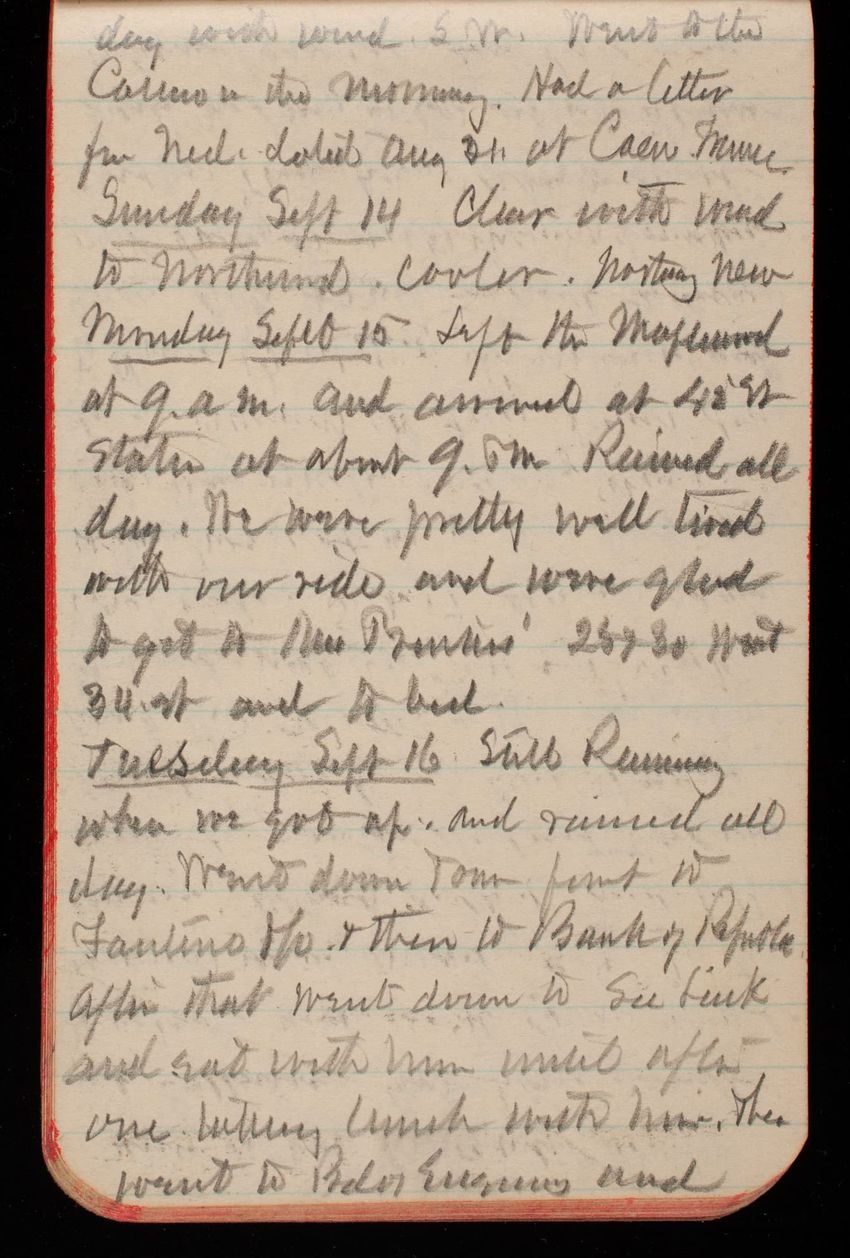 day with wind S W. Went to the
Casino in the morning. Had a letter
from Ned. dated Aug 31. at Caen France.
Sunday Sept 14 Clear with wind
to Northward. cooler. Nothing new
Monday Sept 15 Left the
at 9. a m. and arrived at 42d St
Station at about 9. P m Rained all
day. We were pretty well tired
with our ride and were glad
to get to 28 & 30 West
34. st and to bed.
Tuesday Sept 16 Still Raining
when we got up. and rained all
day. Went down Town first to
& then to Bank of Republic
After that went down to see
and sat with him until after
one taking lunch with him. Then
went to Bd of Engineers and